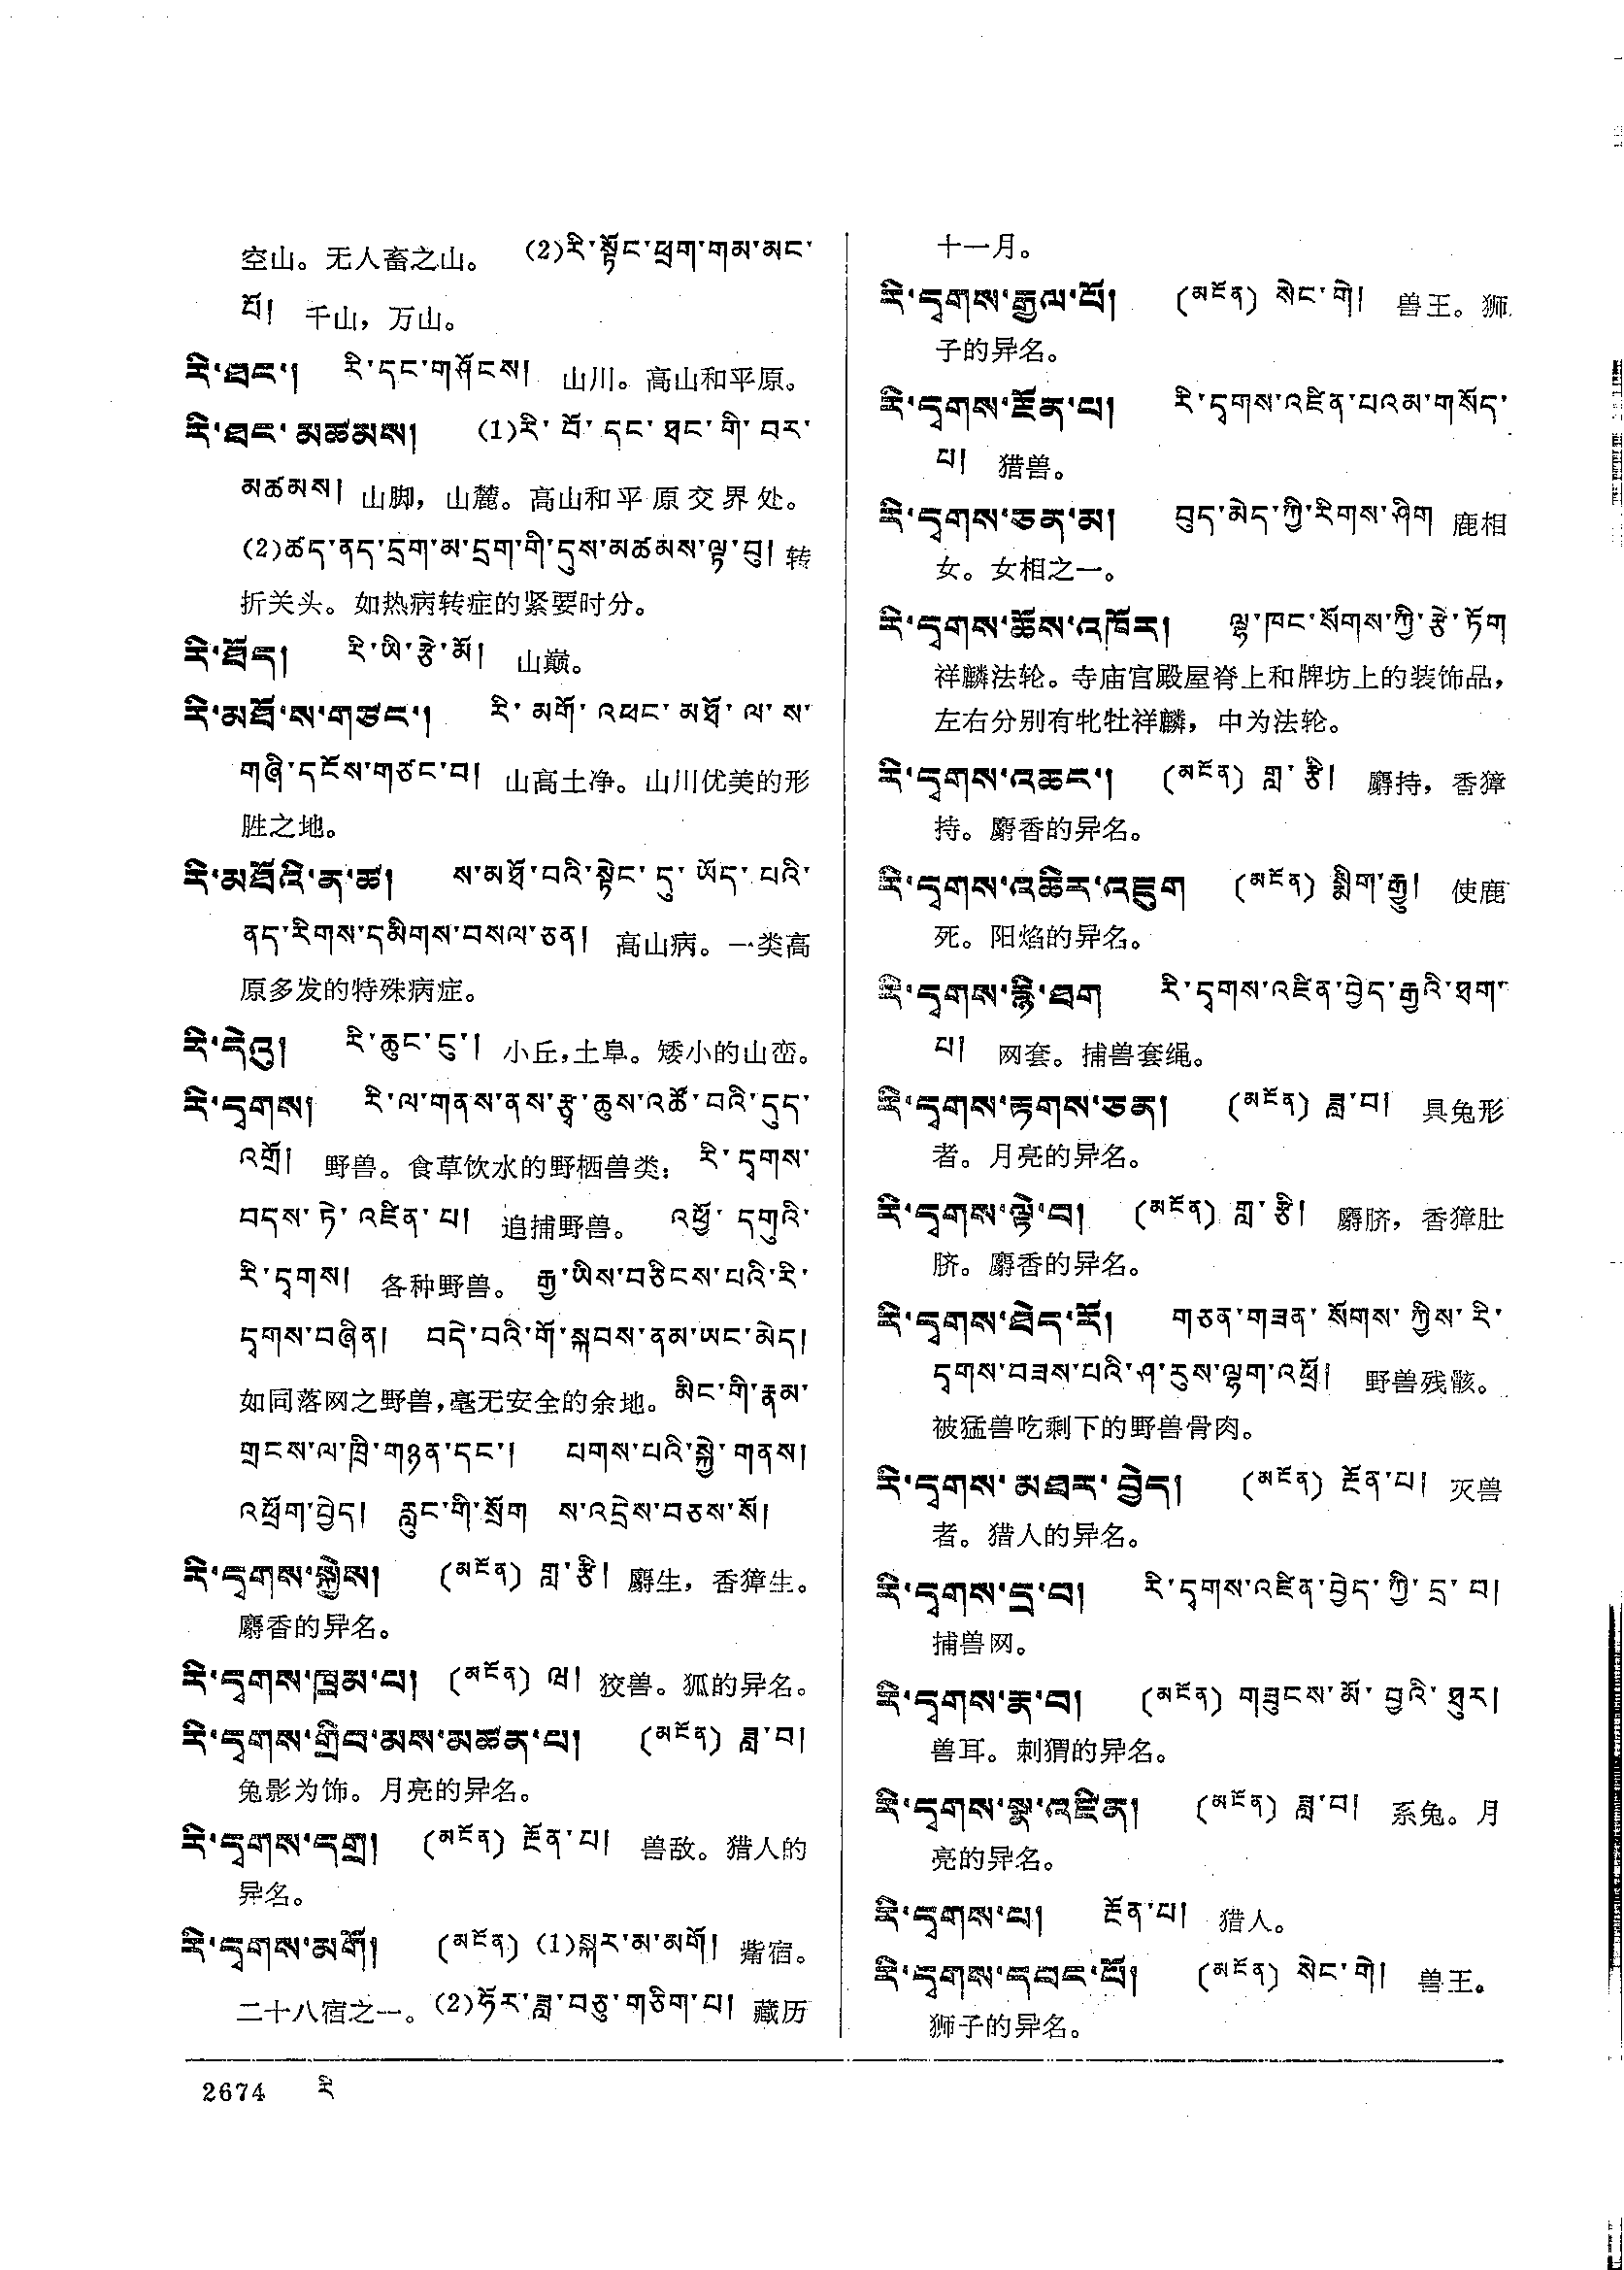 空山。无人畜之山。 (2)རི་སྟོང་ཕྲག་གམ་མང་
པོ། 千山，万山。
རི་ཐང་། རི་དང་གཤོངས། 山川。高山和平原。
རི་ཐང་མཚམས། (1)རི་པོ་དང་ཐང་གི་བར་
མཚམས། 山脚，山麓。高山和平原交界处。
(2)ཚད་ནད་དྲག་མ་དྲག་གི་དུས་མཚམས་ལྟ་བུ། 转
折关头。如热病转症的紧要时分。
རི་ཐོད། རི་ཡི་རྩེ་མོ། 山巅。
རི་མཐོ་ས་གཙང་། རི་མགོ་འཕང་མཐོ་ལ་ས་
གཞི་དངོས་གཙང་བ། 山高土净。山川优美的形
胜之地。
རི་མཐོའི་ན་ཚ། ས་མཐོ་བའི་སྟེང་དུ་ཡོད་པའི་
ནད་རིགས་དམིགས་བསལ་ཅན། 高山病。一类高
原多发的特殊病症。
རི་དེའུ། རི་ཆུང་ངུ་། 小丘，土阜。矮小的山峦。
རི་དྭགས། རི་ལ་གནས་ནས་རྩྭ་ཆུས་འཚོ་བའི་དུད་
འགྲོ། 野兽。食草饮水的野栖兽类： རི་དྭགས་
བདས་ཏེ་འཛིན་པ། 追捕野兽。 འཕྱོ་དགུའི་
རི་དྭགས། 各种野兽。 རྒྱ་ཡིས་བཅིངས་པའི་རི་
དྭགས་བཞིན། བདེ་བའི་གོ་སྐབས་ནམ་ཡང་མེད།
如同落网之野兽，毫无安全的余地。 མིང་གི་རྣམ་
གྲངས་ལ་ཁྲི་གཉན་དང་། པགས་པའི་སྐྱེ་གནས།
འཕྲོག་བྱེད། རླུང་གི་སྲོག ས་འདྲེས་བཅས་སོ།
རི་དྭགས་སྐྱེས། (མངོན) གླ་རྩི། 麝生，香獐生。
麝香的异名。
རི་དྭགས་ཁྲམ་པ། (མངོན) ཝ། 狡兽。狐的异名。
རི་དྭགས་གྲིབ་མས་མཚན་པ། (མངོན) ཟླ་བ།
兔影为饰。月亮的异名。
རི་དྭགས་དགྲ། (མངོན) རྔོན་པ། 兽敌。猎人的
异名。
རི་དྭགས་མགོ། (མངོན) (1)སྐར་མ་མགོ། 觜宿。
二十八宿之一。 (2)ཧོར་ཟླ་བཅུ་གཅིག་པ། 藏历
十一月。
རི་དྭགས་རྒྱལ་པོ། (མངོན) སེང་གེ། 兽王。狮
子的异名。
རི་དྭགས་རྔོན་པ། རི་དྭགས་འཛིན་པའམ་གསོད་
པ། 猎兽。
རི་དྭགས་ཅན་མ། བུད་མེད་ཀྱི་རིགས་ཤིག 鹿相
女。女相之一。
རི་དྭགས་ཆོས་འཁོར། ལྷ་ཁང་སོགས་ཀྱི་རྩེ་ཏོག
祥麟法轮。寺庙宫殿屋脊上和牌坊上的装饰品，
左右分别有牝牡祥麟，中为法轮。
རི་དྭགས་འཆང་། (མངོན) གླ་རྩི། 麝持，香獐
持。麝香的异名。
རི་དྭགས་འཆིར་འཇུག (མངོན) སྨིག་རྒྱུ། 使鹿
死。阳焰的异名。
རི་དྭགས་རྙི་ཐག རི་དྭགས་འཛིན་བྱེད་རྒྱའི་ཐག་
པ། 网套。捕兽套绳。
རི་དྭགས་རྟགས་ཅན། (མངོན) ཟླ་བ། 具兔形
者。月亮的异名。
རི་དྭགས་ལྟེ་བ། (མངོན) གླ་རྩི། 麝脐，香獐肚
脐。麝香的异名。
རི་དྭགས་ཐེད་རོ། གཅན་གཟན་སོགས་ཀྱིས་རི་
དྭགས་བཟས་པའི་ཤ་རུས་ལྷག་འཕྲོ། 野兽残骸。
被猛兽吃剩下的野兽骨肉。
རི་དྭགས་མཐར་བྱེད། (མངོན) རྔོན་པ། 灭兽
者。猎人的异名。
རི་དྭགས་དྲ་བ། རི་དྭགས་འཛིན་བྱེད་ཀྱི་དྲ་བ།
捕兽网。
རི་དྭགས་རྣ་བ། (མངོན) གཟུངས་མོ་བྱའི་ཐུར།
兽耳。刺猬的异名。
རི་དྭགས་སྣ་འཛིན། (མངོན) ཟླ་བ། 系兔。月
亮的异名。
རི་དྭགས་པ། རྔོན་པ། 猎人。
རི་དྭགས་དབང་པོ། (མངོན) སེང་གེ། 兽王。
狮子的异名。
2674 རི